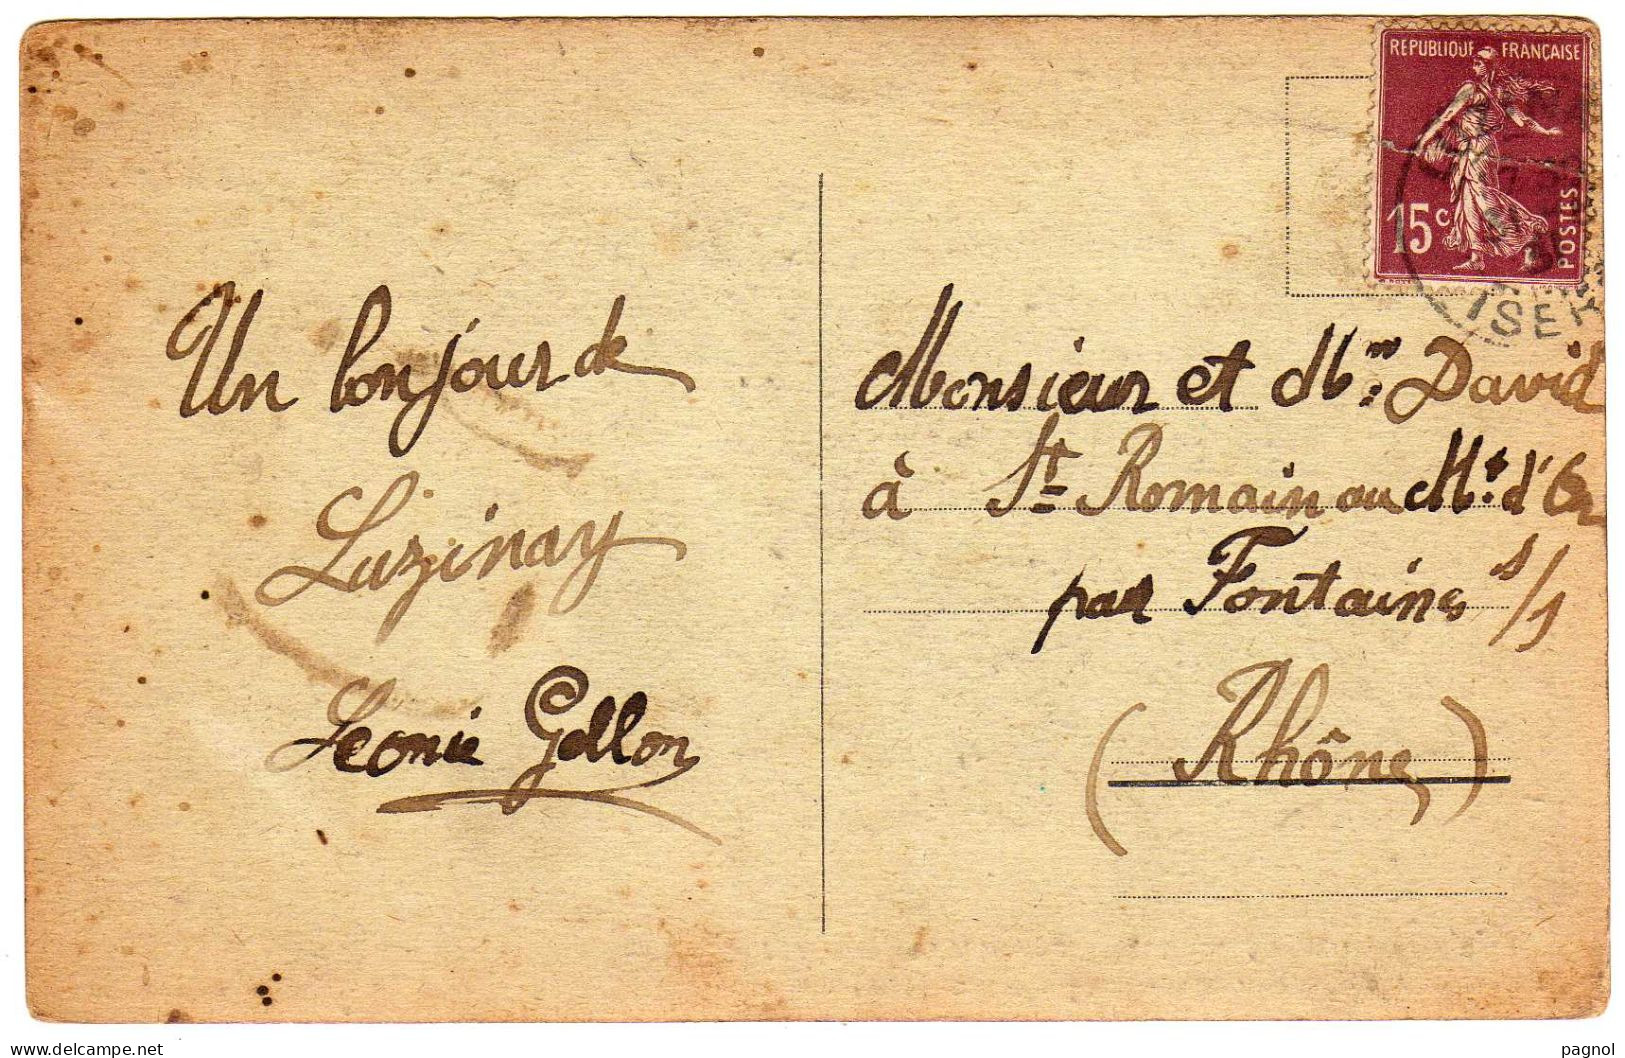 Un bonjour de
Luzinay
Leonie Gollon
REPUBLIQUE FRANÇAISE
15c
POSTES
ISERE
Monsieur et Mme David
à St Romain au Mt. d'Or
par Fontaines s/s
(Rhône)
www.delcampe.net
pagnol